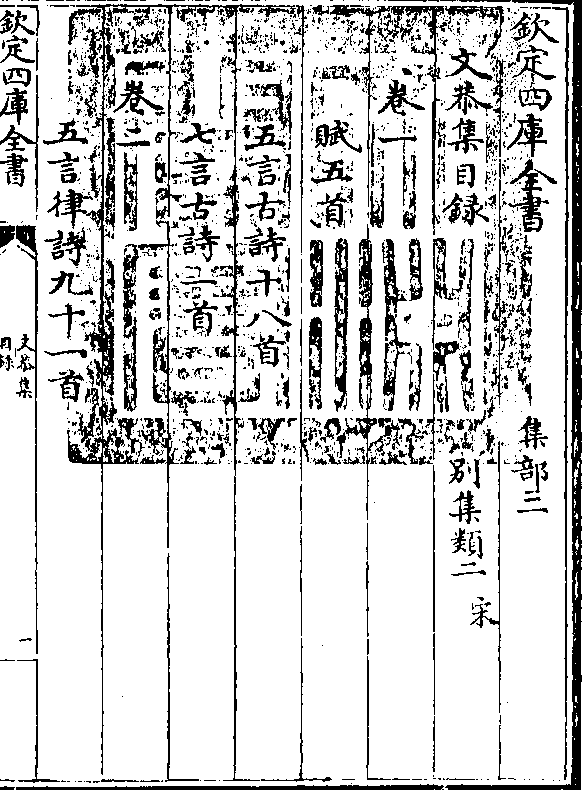 欽定四庫全書
集部三
文恭集目録
別集類二
宋
卷一
賦五首
五言古詩十八首
七言古詩二首
卷二
五言律詩九十一首
欽定四庫全書
文恭集
目録
一